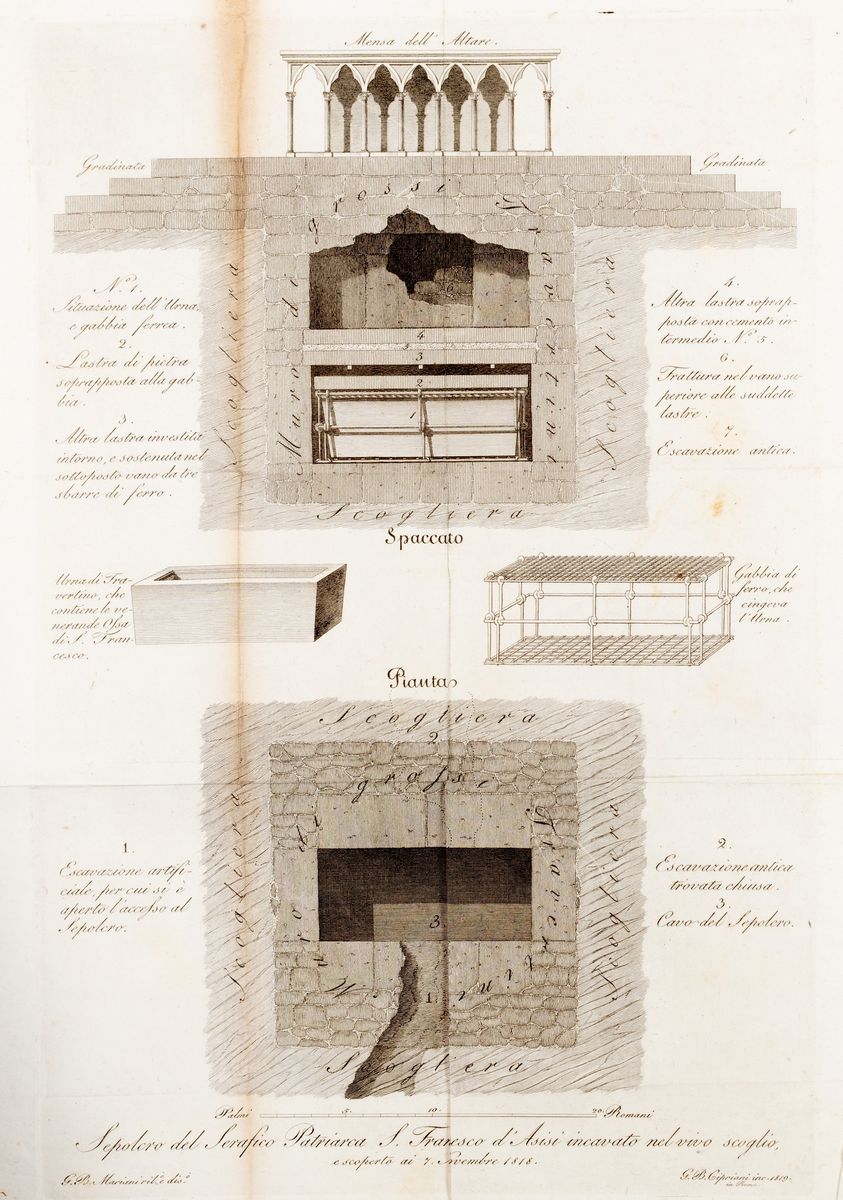 Mensa dell' Altare.
Gradinata
Gradinata
Muro di grossi Travertini
Scogliera
Scogliera
Scogliera
N.o 1.
Situazione dell'Urna,
e gabbia ferrea.
2.
Lastra di pietra
soprapposta alla gab-
bia.
3.
Altra lastra investita
intorno, e sostenuta nel
sottoposto vano da tre
sbarre di ferro.
4.
Altra lastra soprap-
posta con cemento in-
termedio N.o 5.
6.
Frattura nel vano su-
periore alle suddette
lastre.
7.
Escavazione antica.
6
4
5
3
2
1
Spaccato
Urna di Tra-
vertino, che
contiene le ve-
nerande Ossa
di S. Fran-
cesco.
Gabbia di
ferro, che
cingeva
l'Urna.
Pianta
Scogliera
2
Muro di grossi Travertini
Scogliera
Scogliera
3.
1.
Scogliera
1.
Escavazione artifi-
ciale, per cui si è
aperto l'accesso al
Sepolcro.
2.
Escavazione antica
trovata chiusa.
3.
Cavo del Sepolcro.
Palmi 5. 10. 20. Romani
Sepolcro del Serafico Patriarca S. Francesco d'Asisi incavato nel vivo scoglio,
e scoperto ai 7. Nvembre 1818.
G. B. Mariani ril.o e dis.o
G. B. Cipriani inc. 1819.
in Roma